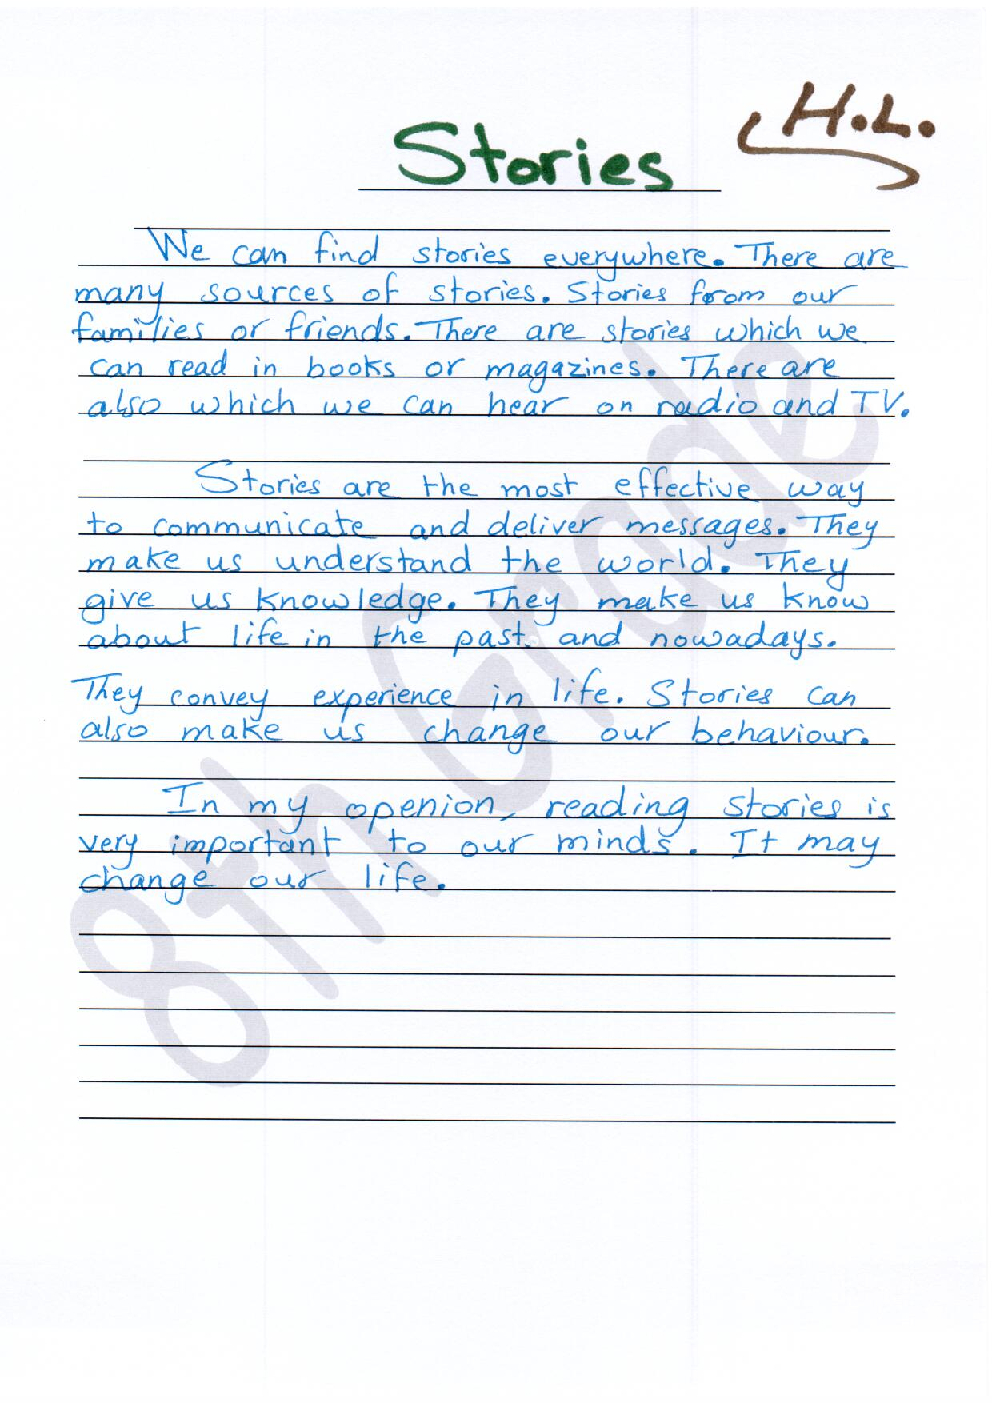 H.L.
Stories
We can find stories everywhere. There are
many sources of stories. Stories from our
families or friends. There are stories which we
can read in books or magazines. There are
also which we can hear on radio and TV.
Stories are the most effective way
to communicate and deliver messages. They
make us understand the world. They
give us knowledge. They make us know
about life in the past and nowadays.
They convey experience in life. Stories can
also make us change our behaviour.
In my openion, reading stories is
very important to our minds. It may
change our life.
8th Grade